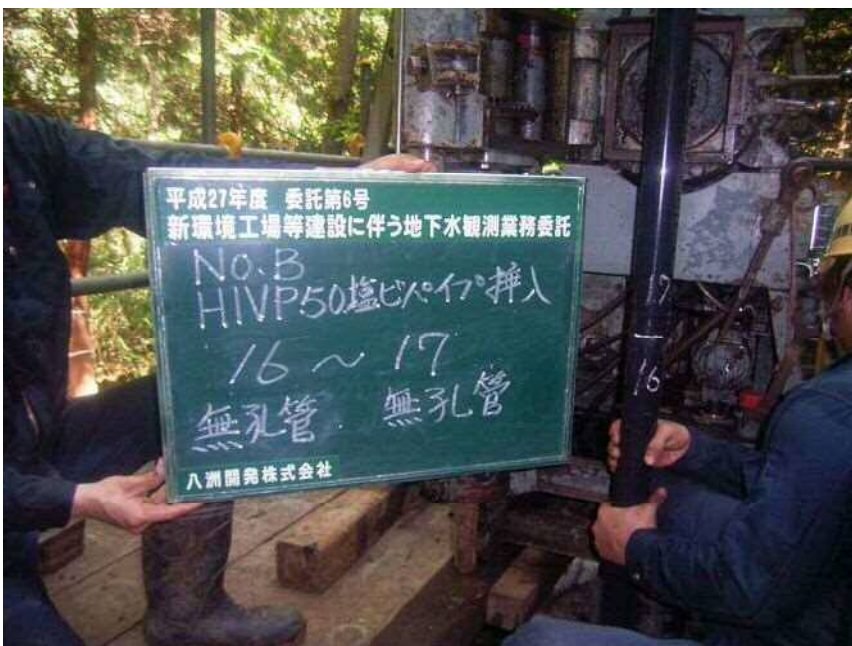 平成27年度 委託第6号
新環境工場等建設に伴う地下水観測業務委託
No.B
HIVP50塩ビパイプ挿入
16 ~ 17
無孔管. 無孔管
八洲開発株式会社
17
16